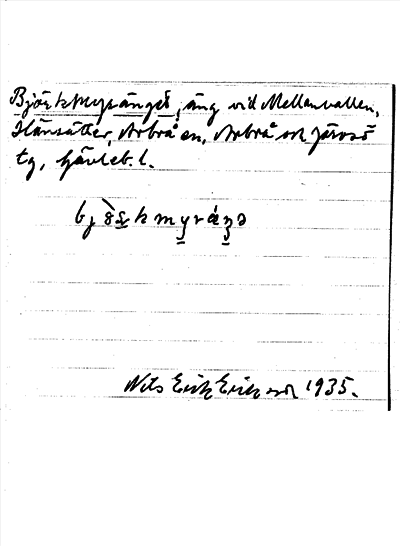 Björkmyrängæ, äng vid Mellanvallen,
Hänsätter, Arbrå sn, Arbrå och Järvsö
tg, Gävleb. l.
Nils Erik Eriksson 1935.